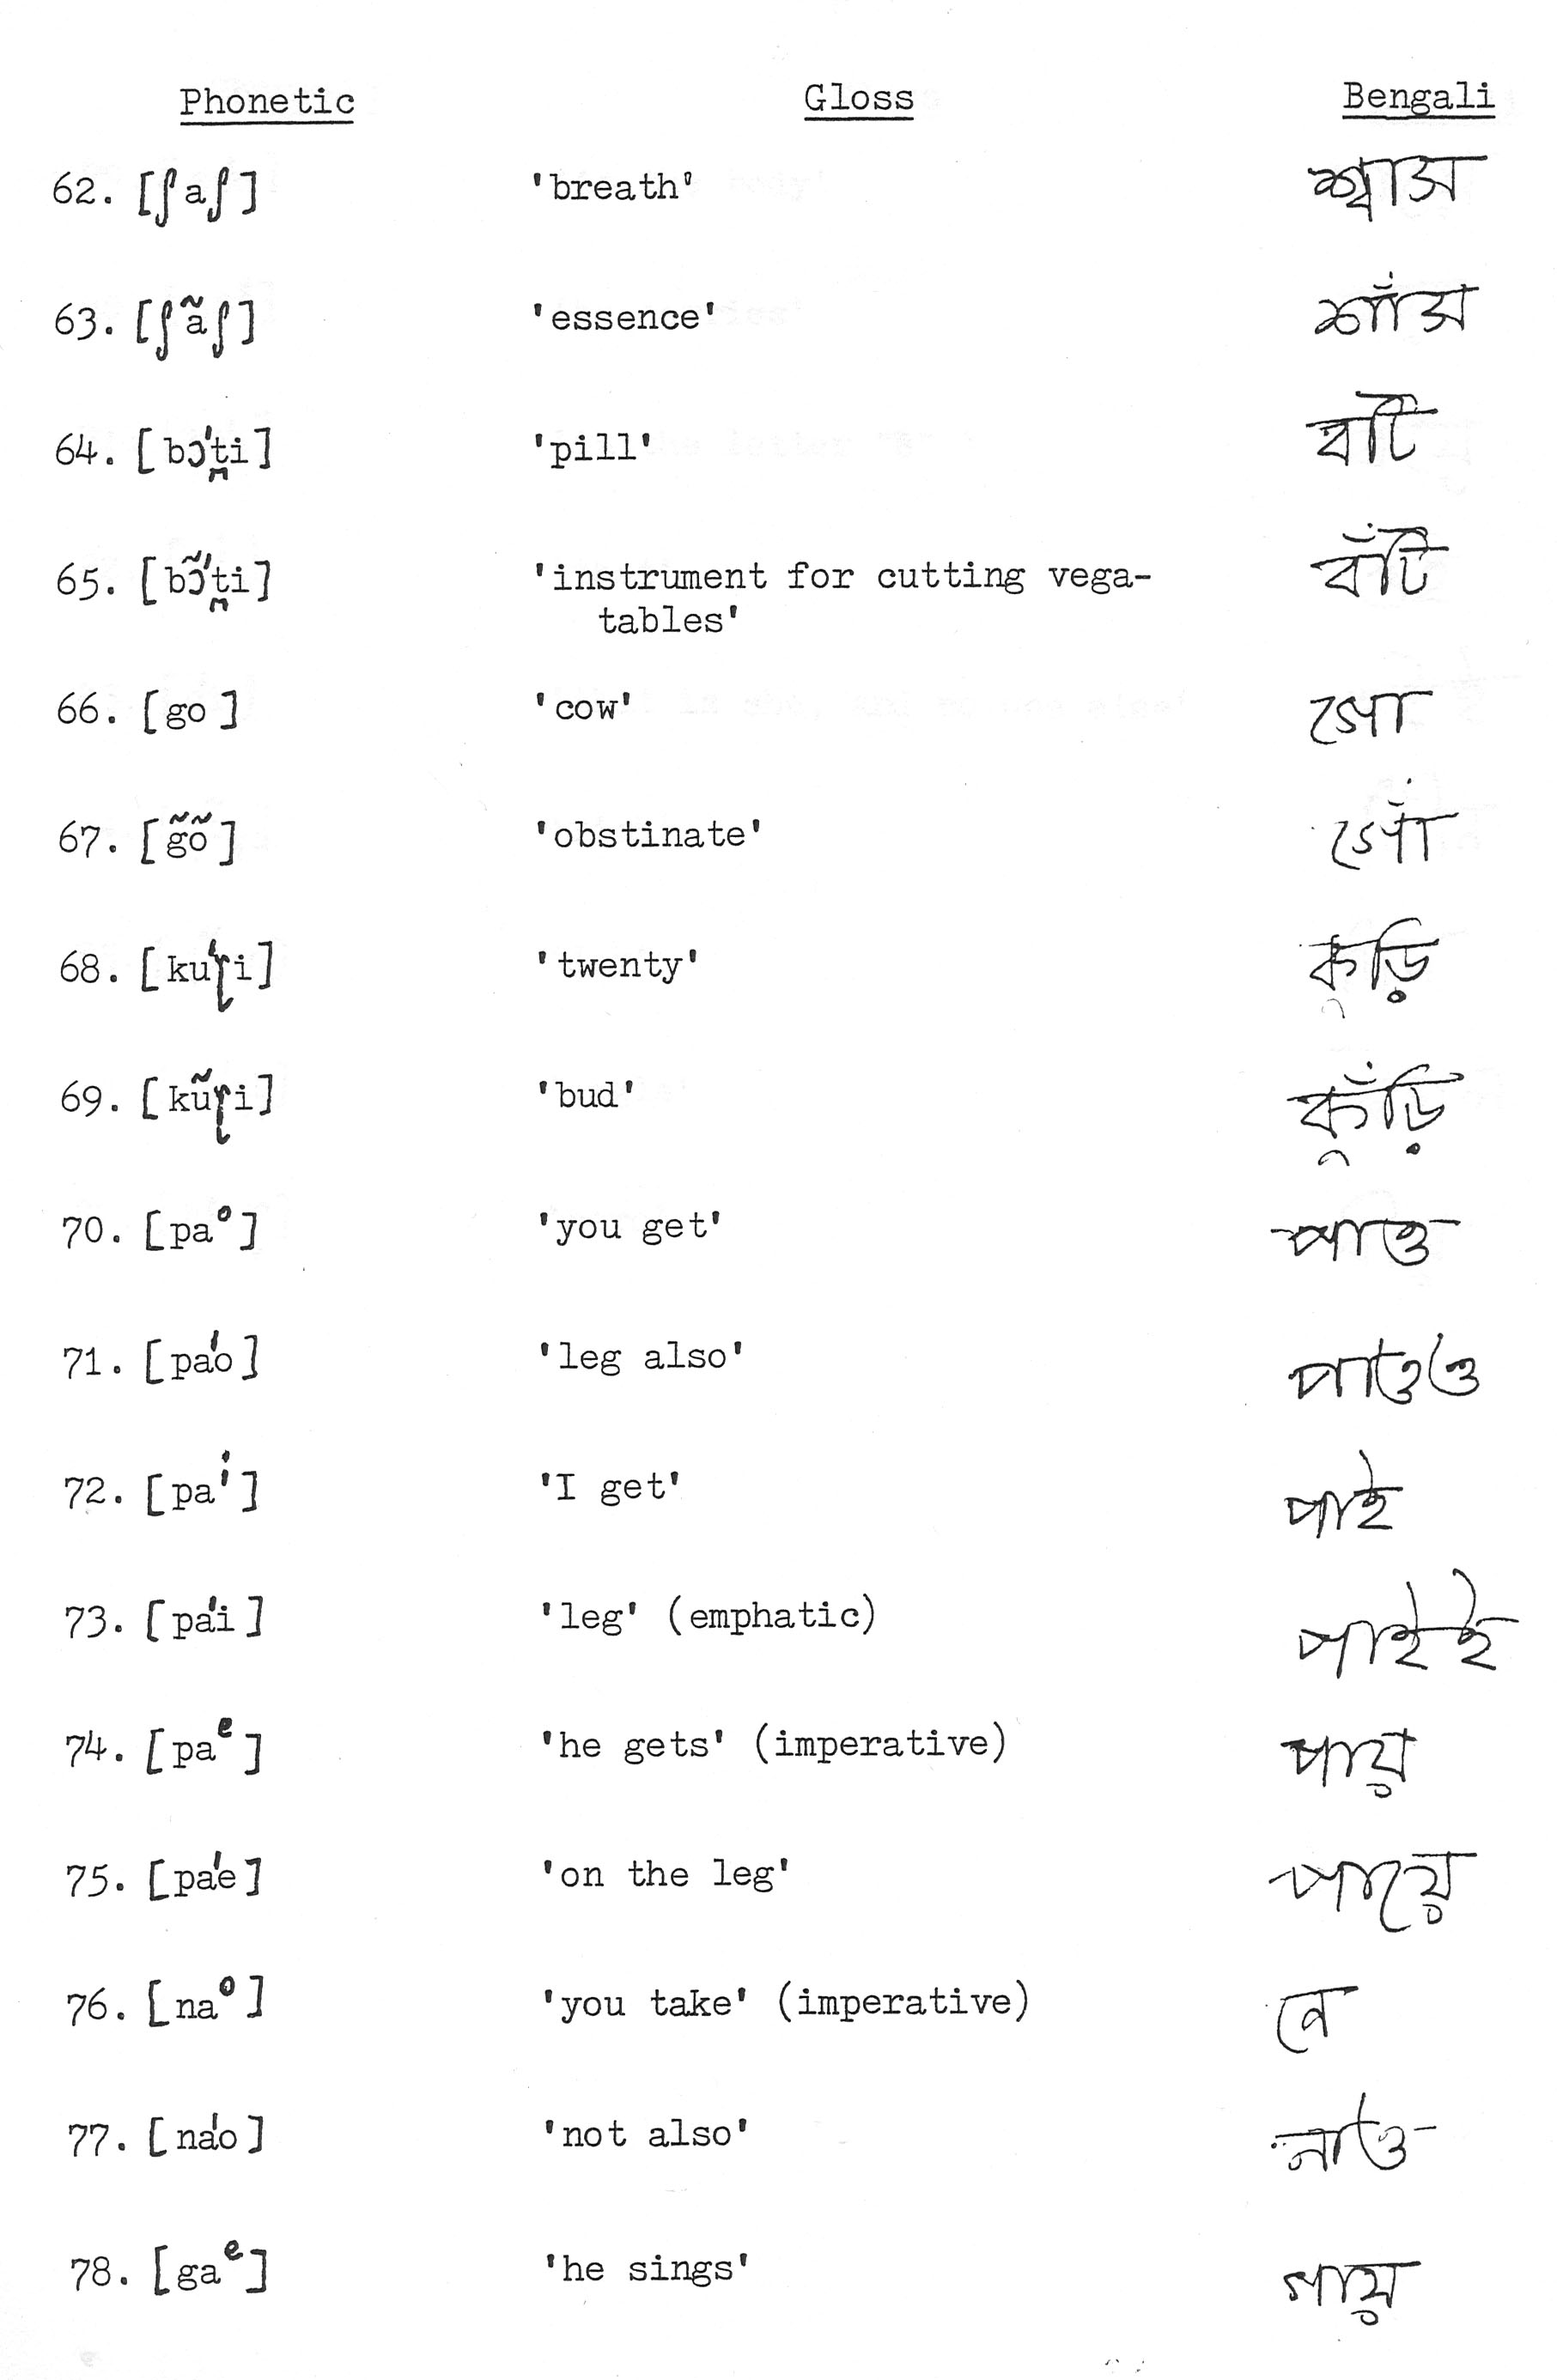 Phonetic Gloss Bengali
62. [ʃaʃ] 'breath' শ্বাস
63. [ʃãʃ] 'essence' শাঁস
64. [bɔ't̪i] 'pill' বটি
65. [bɔ̃'t̪i] 'instrument for cutting vega-
tables' বঁটি
66. [go] 'cow' গো
67. [g̃õ] 'obstinate' গোঁ
68. [ku'ɽi] 'twenty' কুড়ি
69. [kũɽi] 'bud' কুঁড়ি
70. [paᵒ] 'you get' পাও
71. [pa'o] 'leg also' পাওও
72. [paⁱ] 'I get' পাই
73. [pa'i] 'leg' (emphatic) পাইই
74. [paᵉ] 'he gets' (imperative) পায়
75. [pa'e] 'on the leg' পায়ে
76. [naᵒ] 'you take' (imperative) নে
77. [na'o] 'not also' নাও
78. [gaᵉ] 'he sings' গায়